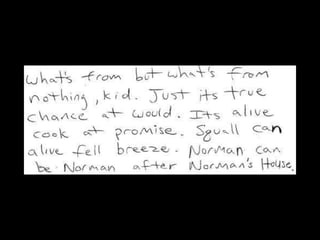 what's from but what's from
nothing, kid. Just its true
chance at would. Its alive
cook at promise. Squall can
alive fell breeze. Norman can
be Norman after Norman's House.